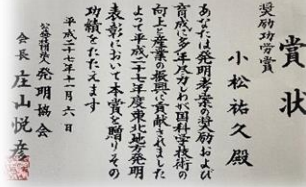 賞状
奨励功労賞
小松祐久殿
あなたは発明考案の奨励および
育成に多年尽力しわが国科学技術の
向上と産業の振興に貢献されました
よって平成二十七年度東北地方発明
表彰において本賞を贈りその
功績をたたえます
平成二十七年十一月六日
公益社団法人発明協会
会長 庄山悦彦